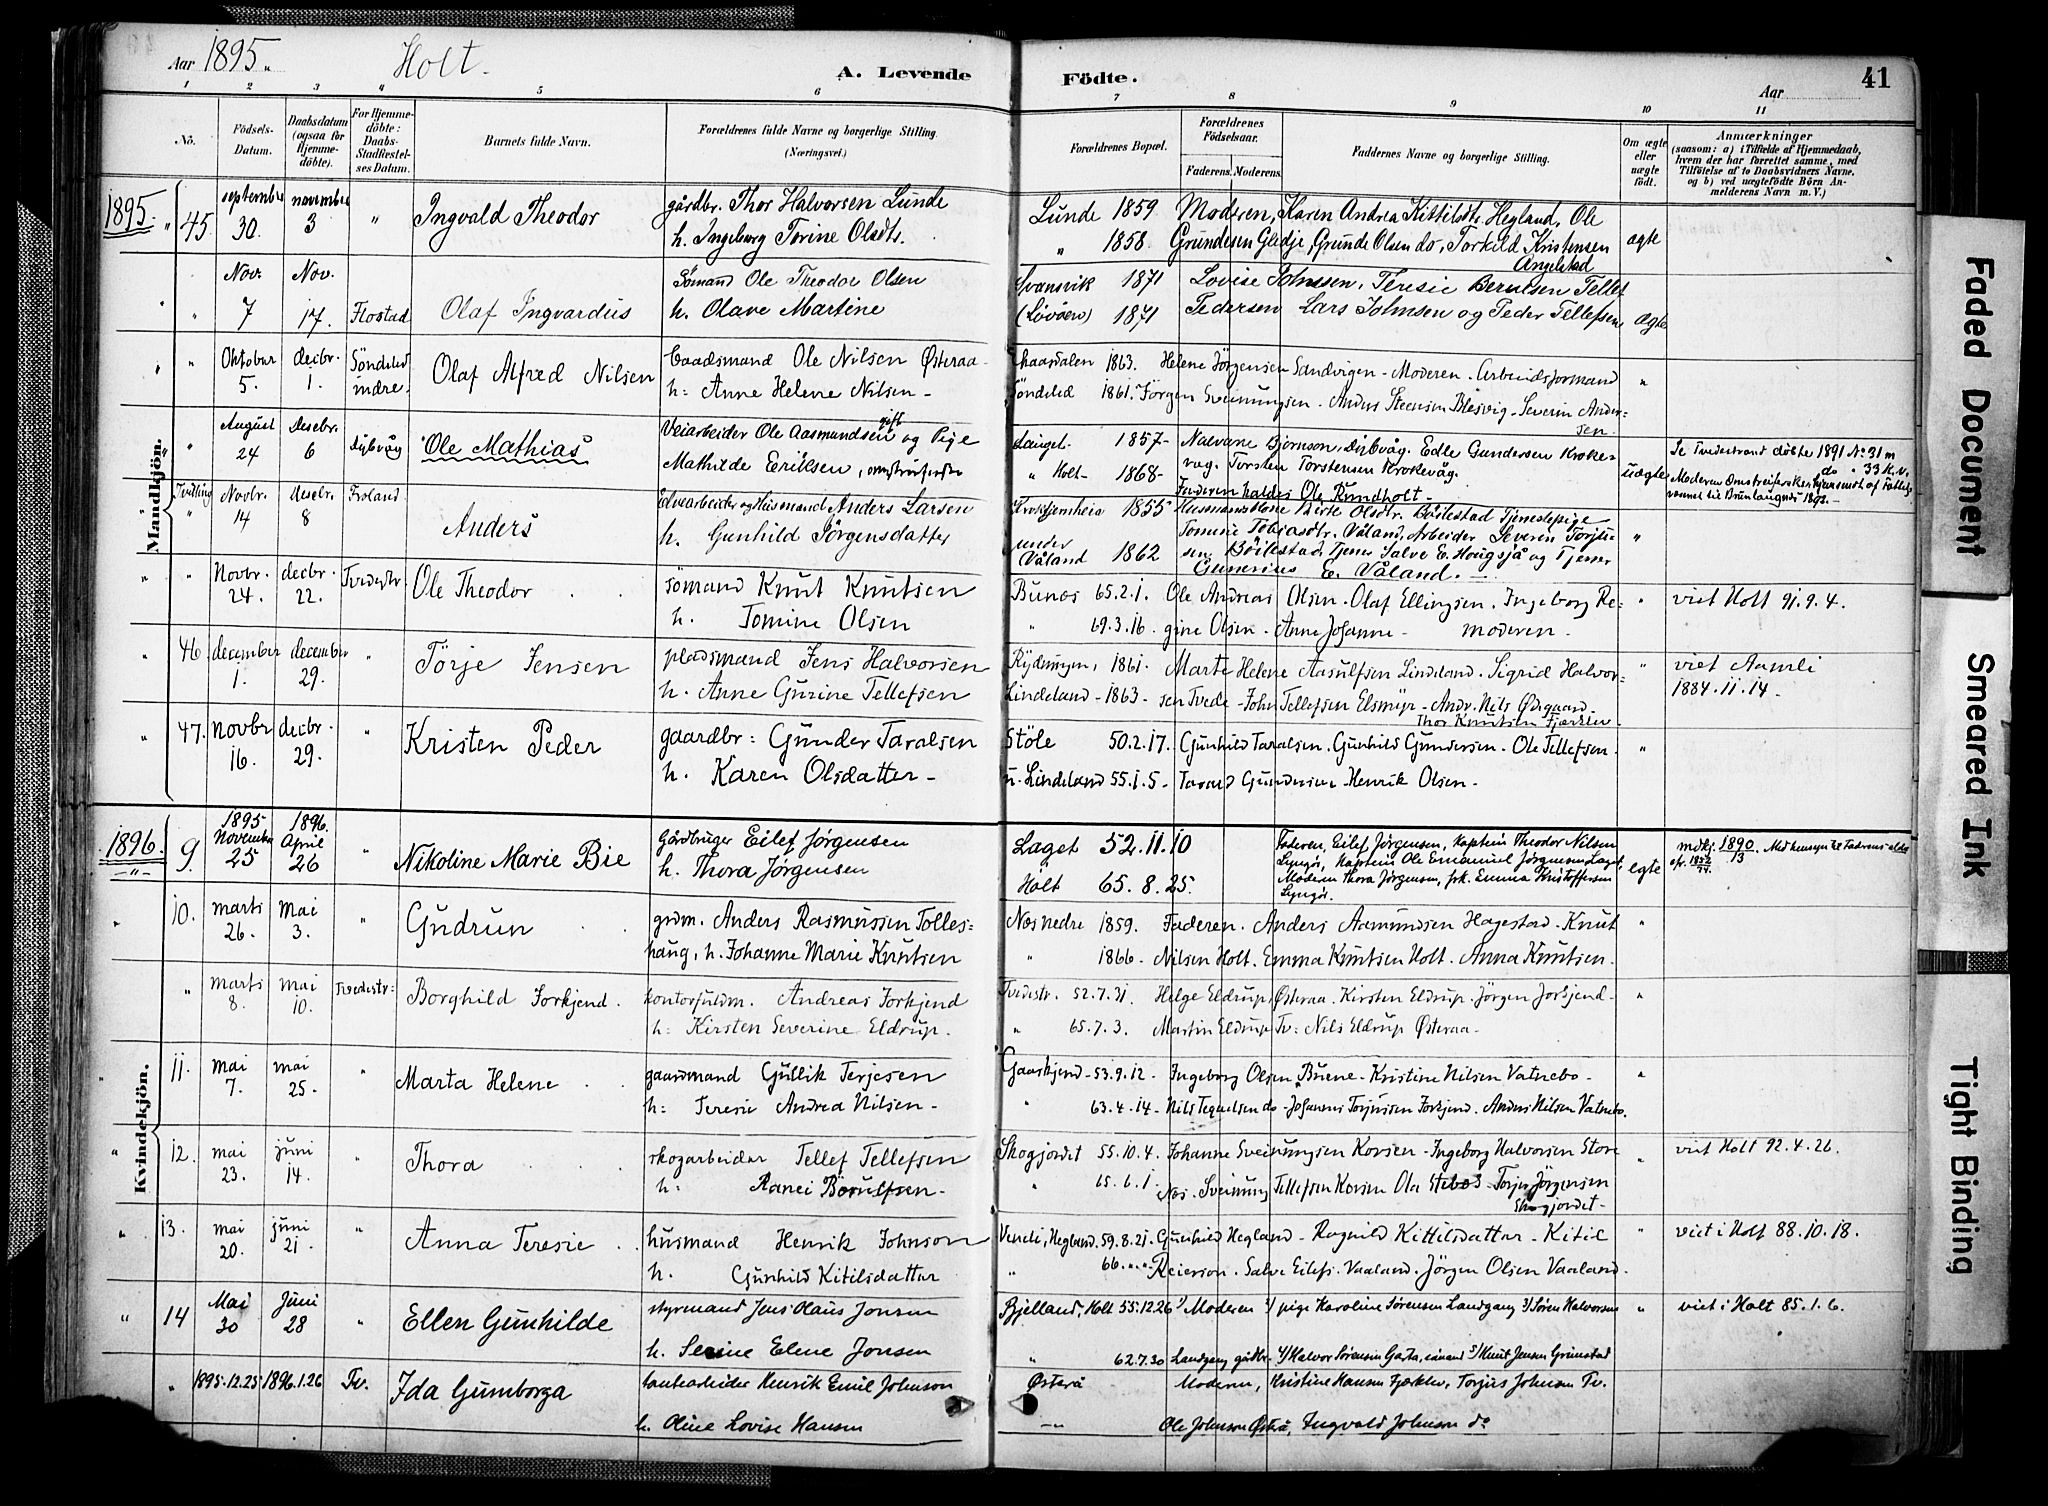 Aar 1895. Holt. A. Levende Födte. Aar 41
1 2 3 4 5 6 7 8 9 10 11
No.
Födsels-Datum.
Daabsdatum (ogsaa for Hjemmedöbte).
For Hjemmedöbte: Daabs-Stadfæstelses Datum.
Barnets fulde Navn.
Forældrenes fulde Navne og borgerlige Stilling. (Næringsvei.)
Forældrenes Bopæl.
Forældrenes Födselsaar.
Faderens. Moderens.
Faddernes Navne og borgerlige Stilling.
Om ægte eller uægte födt.
Anmærkninger
(saasom: a) i Tilfælde af Hjemmedaab, hvem der har forrettet samme, med Tilföielse af to Daabsvidners Navne. og b) ved uægtefödte Börn Anmelderens Navn m. V.)
Mandkjön.
1895. " 45. september 30. november 3 " Ingvald Theodor gårdbr. Thor Halvorsen Lunde Lunde 1859 Moderen, Karen Andrea Kittilsdtr. Hegland, Ole
h. Ingeborg Torine Olsdtr. " 1858. Grundesen Gledje, Grunde Olsen do, Torkild Kristensen Angelstad ægte
" " Nov. 7 Nov. 17. Flostad Olaf Ingvardus Sömand Ole Theodor Olsen Svansvik 1871 Lovise Johnsen, Teresie Berntsen Tellef
h. Olave Martine 1871 Pedersen Lars Johnsen og Peder Tellefsen ægte
" " Oktober 5. decbr. 1. Söndeled indre. Olaf Alfred Nilsen baadsmand Ole Nilsen Østeraa 1863. Helene Jörgensen Sandvigen - Moderen. Arbeidsformand "
h: Anne Helene Nilsen - Söndeled 1861. Jörgen Sveinungsen - Anders Steensen Blesvig - Severin Andersen.
" August 24 Desebr. 6 Dybvåg Ole Mathias Veiarbeider Ole Aasmundsen gift og Pige Lauget 1857- Bjornson, Dybvåg. Edle Gundersen Krokevag. Torsten Torstensen Krokevåg. uægte Se Tvedestrand döbte 1891 No 31 m
do " 33 K.v.
Mathilde Eeriksen, omstreiferske " Holt- 1868- Faderen kaldes Ole Rundholt -
Tvilling " Novbr. 14 Desebr. 8 Froland Anders og Husmand Anders Larsen 1855 Birte Olsdtr. Böilestad Tjenestepige
h. Gunhild Jörgensdatter under Våland 1862 Tomine Tobiasdtr. Våland, Arbeider Severin Torjussen Böilestad, Tjener Salve E. Hougsjå og Tjener
Gunerius E. Våland. - "
" " Novbr. 24. decbr. 22. Tvedestr. Ole Theodor sömand Knut Knutsen Bunes 65.2.1. Ole Andreas Olsen. Olaf Ellingsen. Ingeborg Re= " viet Holt 91.9.4.
h. Tomine Olsen " 69.3.16. gine Olsen - Anne Johanne - moderen -
" 46. december 1. december 29. " Törje Jensen pladsmand Jens Halvorsen Rydningen, 1861. Marte Helene Aasulfsen Lindeland. Sigrid Halvor= " viet Aamli
h. Anne Gurine Tellefsen Lindeland - 1863 - sen Tvede - John Tellefsen Elsmyr - Andr. Nils Ødegaard. Thor Knutsen Fjærkleiv 1884.11.14 -
" 47. Novbr 16. decbr. 29. " Kristen Peder gaardbr: Gunder Taralsen Stöle 50.2.17. Gunhild Taralsen. Gunhild Gundersen. Ole Tellefsen. "
h. Karen Olsdatter - u. Lindeland 55.1.5 - Tarald Gundersen - Henrik Olsen -
Kvindekjön.
1896. 9. 1895 November 25 1896. April 26 " Nikoline Marie Bie Gårdbruger Eilef Jørgensen Laget 52.11.10 Faderen, Eilef Jørgensen, Kaptein Theodor Nilsen
Lyngör, Kaptein Ole Emanuel Jørgensen Laget, egte mdkj. 1890/13 Med hensyn til Faderens alder
cfr. 1852/74.
h. Thora Jørgensen Holt 65.8.25. Moderen Thora Jørgensen, frk. Emma Kristoffersen Lyngör.
" 10. marts 26. Mai 3. " Gudrun grdm. Anders Rasmussen Tolles= Næs nedre 1859. Faderen. Anders Aamundsen Hagestad. Knut "
haug, h. Johanne Marie Knutsen " 1866 - Nilsen Holt. Emma Knutsen Holt. Anna Knutsen.
" marts 8. mai 10. Tvedestr: Borghild Forkjend. kontorfuldm. Andreas Forkjend Tvedestr. 52.7.31. Helge Eldrup, Østeraa. Kirsten Eldrup. Jörgen Forkjend - "
h: Kirsten Severine Eldrup. " 65.7.3. Martin Eldrup Tv: Nils Eldrup Østeraa -
" 11. mai 7. mai 25. " Marta Helene gaardmand Gullik Terjesen Gaaskjend - 53.9.12. Ingeborg Olsen Buene - Kristine Nilsen Vatnebo - "
h: Teresie Andrea Nilsen - " 63.4.14 - Nils Tegnelsen do - Johannes Torjussen Forkjend. Anders Nilsen Vatnebo.
" 12. mai 23. juni 14. " Thora skogarbeider Tellef Tellefsen Skogjordet 55.10.4. Johanne Sveinungsen Korsen - Ingeborg Halvorsen Store " viet Holt 92.4.26.
h: Ranei - " 65.6.1. Næs. Sveinung Tellefsen Korsen Ola Torjus Jörgensen Skogjordet -
" 13. mai 20. juni 21. " Anna Teresie husmand Henrik Johnson Hegland. 59.8.21. Gunhild Hegland - Ragnild Kittilsdatter - Kitil " viet i Holt 88.10.18.
h. Gunhild Kitilsdatter " 66. " " Reierson. Salve Eilefs. Vaaland. Jörgen Olsen Vaaland.
" 14 Mai 30 Juni 28 " Ellen Gunhilde styrmand Jens Olaus Jonsen Bjelland, Holt 55.12.26 1) Moderen 2) pige Karoline Sørensen Landgang 3) Søren Halvorsen " viet i Holt 85.1.6.
h. Serine Elene Jonsen " 62.7.30 Landgang gårdbr. 4) Halvor Sørensen Gata, sömand 5) Knut Jensen Grimstad
" 1895.12.25 1896.1.26 Tv. Ida Gumborga Henrik Emil Johnson Østerå Moderen, Kristine Hansen Fjærkleiv, Torjus Johnsen Tv.
h. Oline Lovise Hansen -"- Ole Johnson Østerå, Ingvald Johnson do
Faded Document
Smeared Ink
Tight Binding